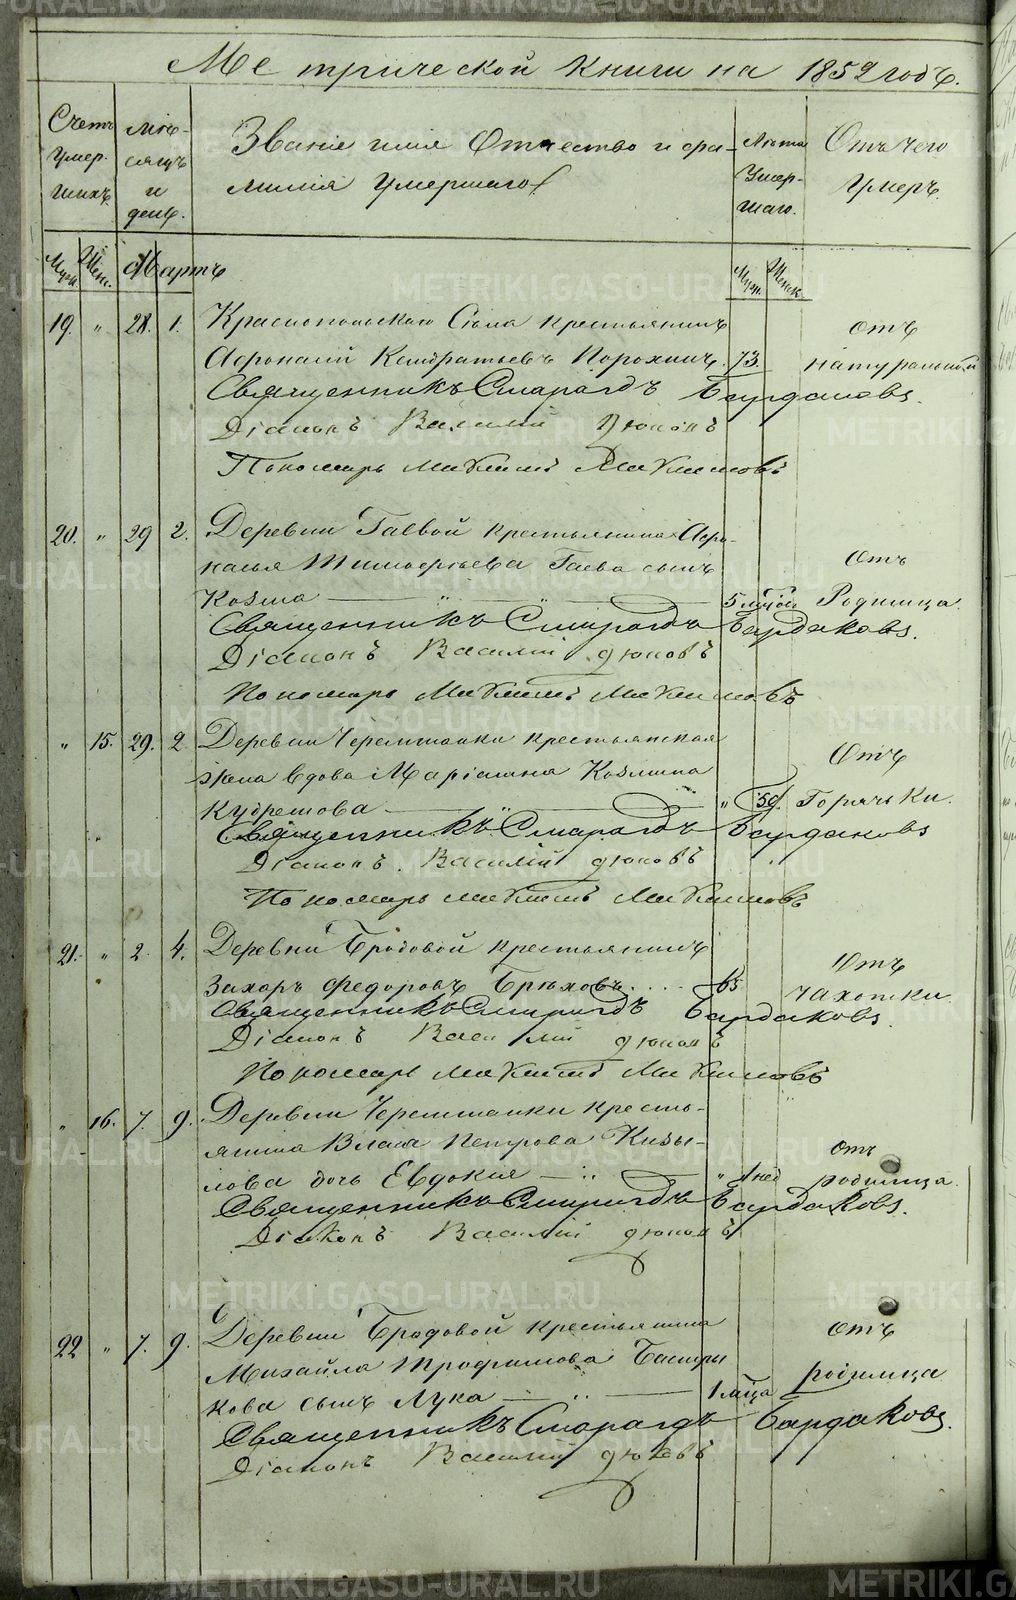 Метрической книги на 1852 годъ.
Счетъ умер-шихъ. Мѣ-сяцъ и день. Званіе имя Отчество и фа-милія умершаго Лѣта Умер-шаго. Отъ чего умеръ.
Муж. Жен. Мартъ Муж. Женск.
19. " 28. 1. Краснопольскаго Села крестьянинъ отъ
Кондратьевъ Порохинъ. 73. натуральной
Священникъ Смарагдъ Бардаковъ.
Діаконъ Василій Дюковъ
Пономарь Максимъ Максимовъ
20. " 29 2. Деревни Гаевой крестьянина Афо-
насья Тимофѣева Гаева сынъ отъ
Козма " " 5 Родимца.
Священникъ Смарагдъ Бардаковъ.
Діаконъ Василій Дюковъ
Пономарь Максимъ Максимовъ
" 15. 29. 2. Деревни Черемшанки крестьянская Отъ
жена вдова Маріамна Козмина
" 59. Горячьки.
Священникъ Смарагдъ Бардаковъ
Діаконъ. Василій Дюковъ
Пономарь Максимъ Максимовъ
21. " 2. 4. Деревни Бродовой крестьянинъ Отъ
Захаръ Федоровъ Брюховъ. . . . 65 чахотки.
Священникъ Смарагдъ Бардаковъ.
Діаконъ Василій Дюковъ
Пономарь Максимъ Максимовъ
" 16. 7. 9. Деревни Черемшанки кресть-
янина Власа Петрова Кизы- отъ
лова дочь Евдокия " 1 нед родимца.
Священникъ Смарагдъ Бардаковъ.
Діаконъ Василій Дюковъ
22 " 7. 9. Деревни Бродовой крестьянина отъ
Михайла Трофимова Бастры родимца
кова сынъ Лука 1 мѣца
Священникъ Смарагдъ Бардаковъ.
Діаконъ Василій Дюковъ
METRIKI.GASO-URAL.RU